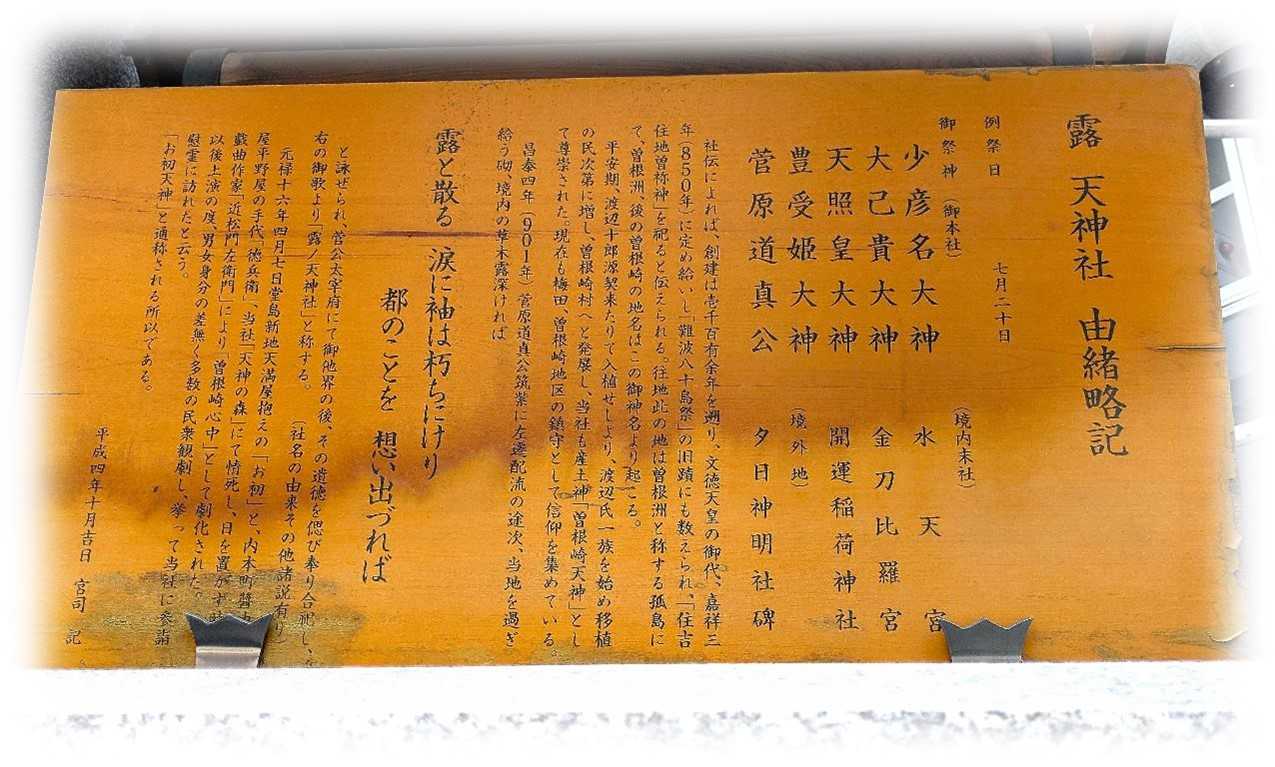 露 天神社 由緒略記
例祭日 七月二十日
御祭神(御本社) (境内末社)
少彦名大神 水天宮
大己貴大神 金刀比羅宮
天照皇大神 開運稲荷神社
豊受姫大神 (境外地)
菅原道真公 夕日神明社碑
社伝によれば、創建は壱千百有余年を遡り、文徳天皇の御代、嘉祥三
年(850年)に定め給いし「難波八十島祭」の旧蹟にも数えられ、「住吉
住地曽祢神」を祀ると伝えられる。往地此の地は曽根洲と称する孤島に
て、曽根洲、後の曽根崎の地名はこの御神名より起こる。
平安期、渡辺十郎源契来たりて入植せしより、渡辺氏一族を始め移植
の民次第に増し、曽根崎村へと発展し、当社も産土神「曽根崎天神」とし
て尊崇された。現在も梅田、曽根崎地区の鎮守として信仰を集めている。
昌泰四年(901年)菅原道真公筑紫に左遷配流の途次、当地を過ぎ
給う砌、境内の草木露深ければ
露と散る 涙に袖は朽ちにけり
都のことを 想い出づれば
と詠ぜられ、菅公太宰府にて御他界の後、その遺徳を偲び奉り合祀し、
右の御歌より「露ノ天神社」と称する。 (社名の由来その他諸説有り)
元禄十六年四月七日堂島新地天満屋抱えの「お初」と、内本町醤
屋平野屋の手代「徳兵衛」、当社「天神の森」にて情死し、日を置かず時
戯曲作家「近松門左衛門」により「曽根崎心中」として劇化された。
以後上演の度、男女身分の差無く多数の民衆観劇し、挙って当社に参詣
慰霊に訪れたと云う。
「お初天神」と通称される所以である。
平成四年十月吉日 宮司 記